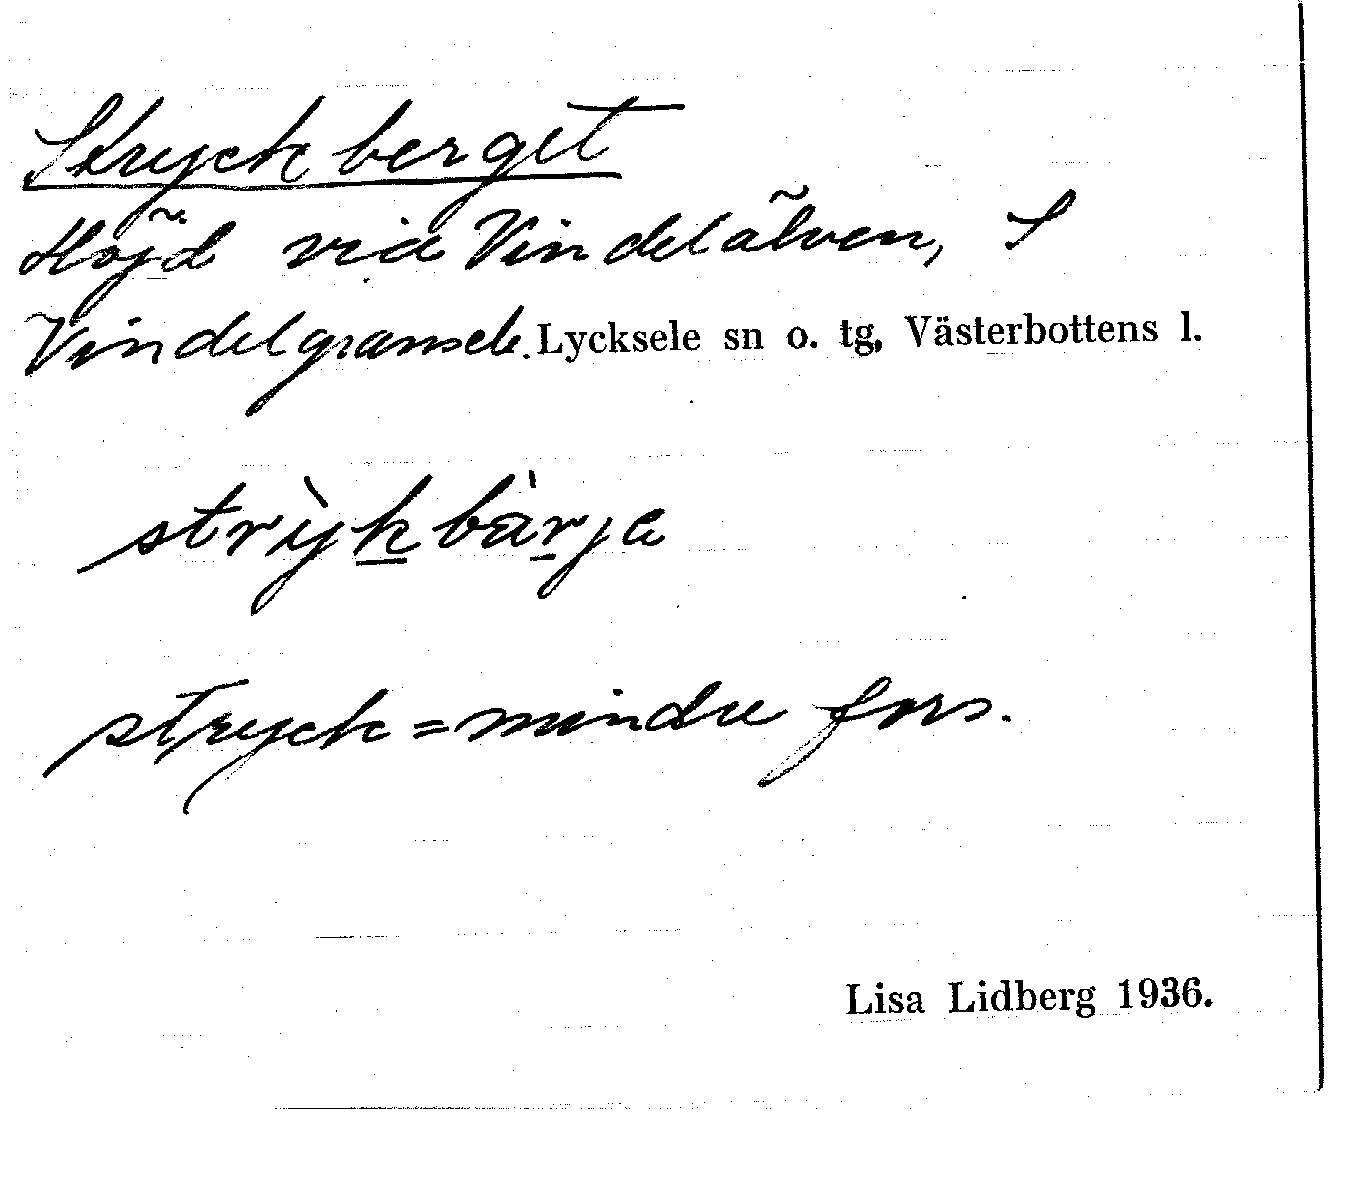 Stryckberget
Höjd vid Vindelälven, S
Vindelgransele. Lycksele sn o. tg, Västerbottens l.
strỳk̲bàr̲ja
stryck = mindre fors.
Lisa Lidberg 1936.